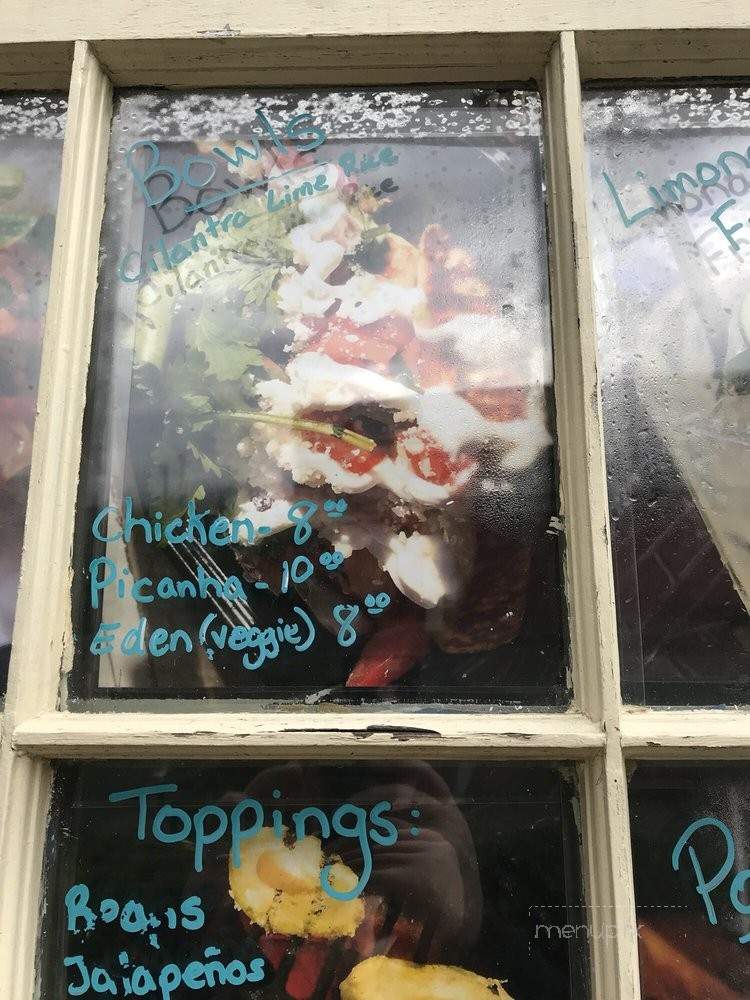 Bowls
Cilantro Lime Rice
Chicken - 8.00
Picanha - 10.00
Eden (veggie) 8.00
Toppings:
Jalapeños